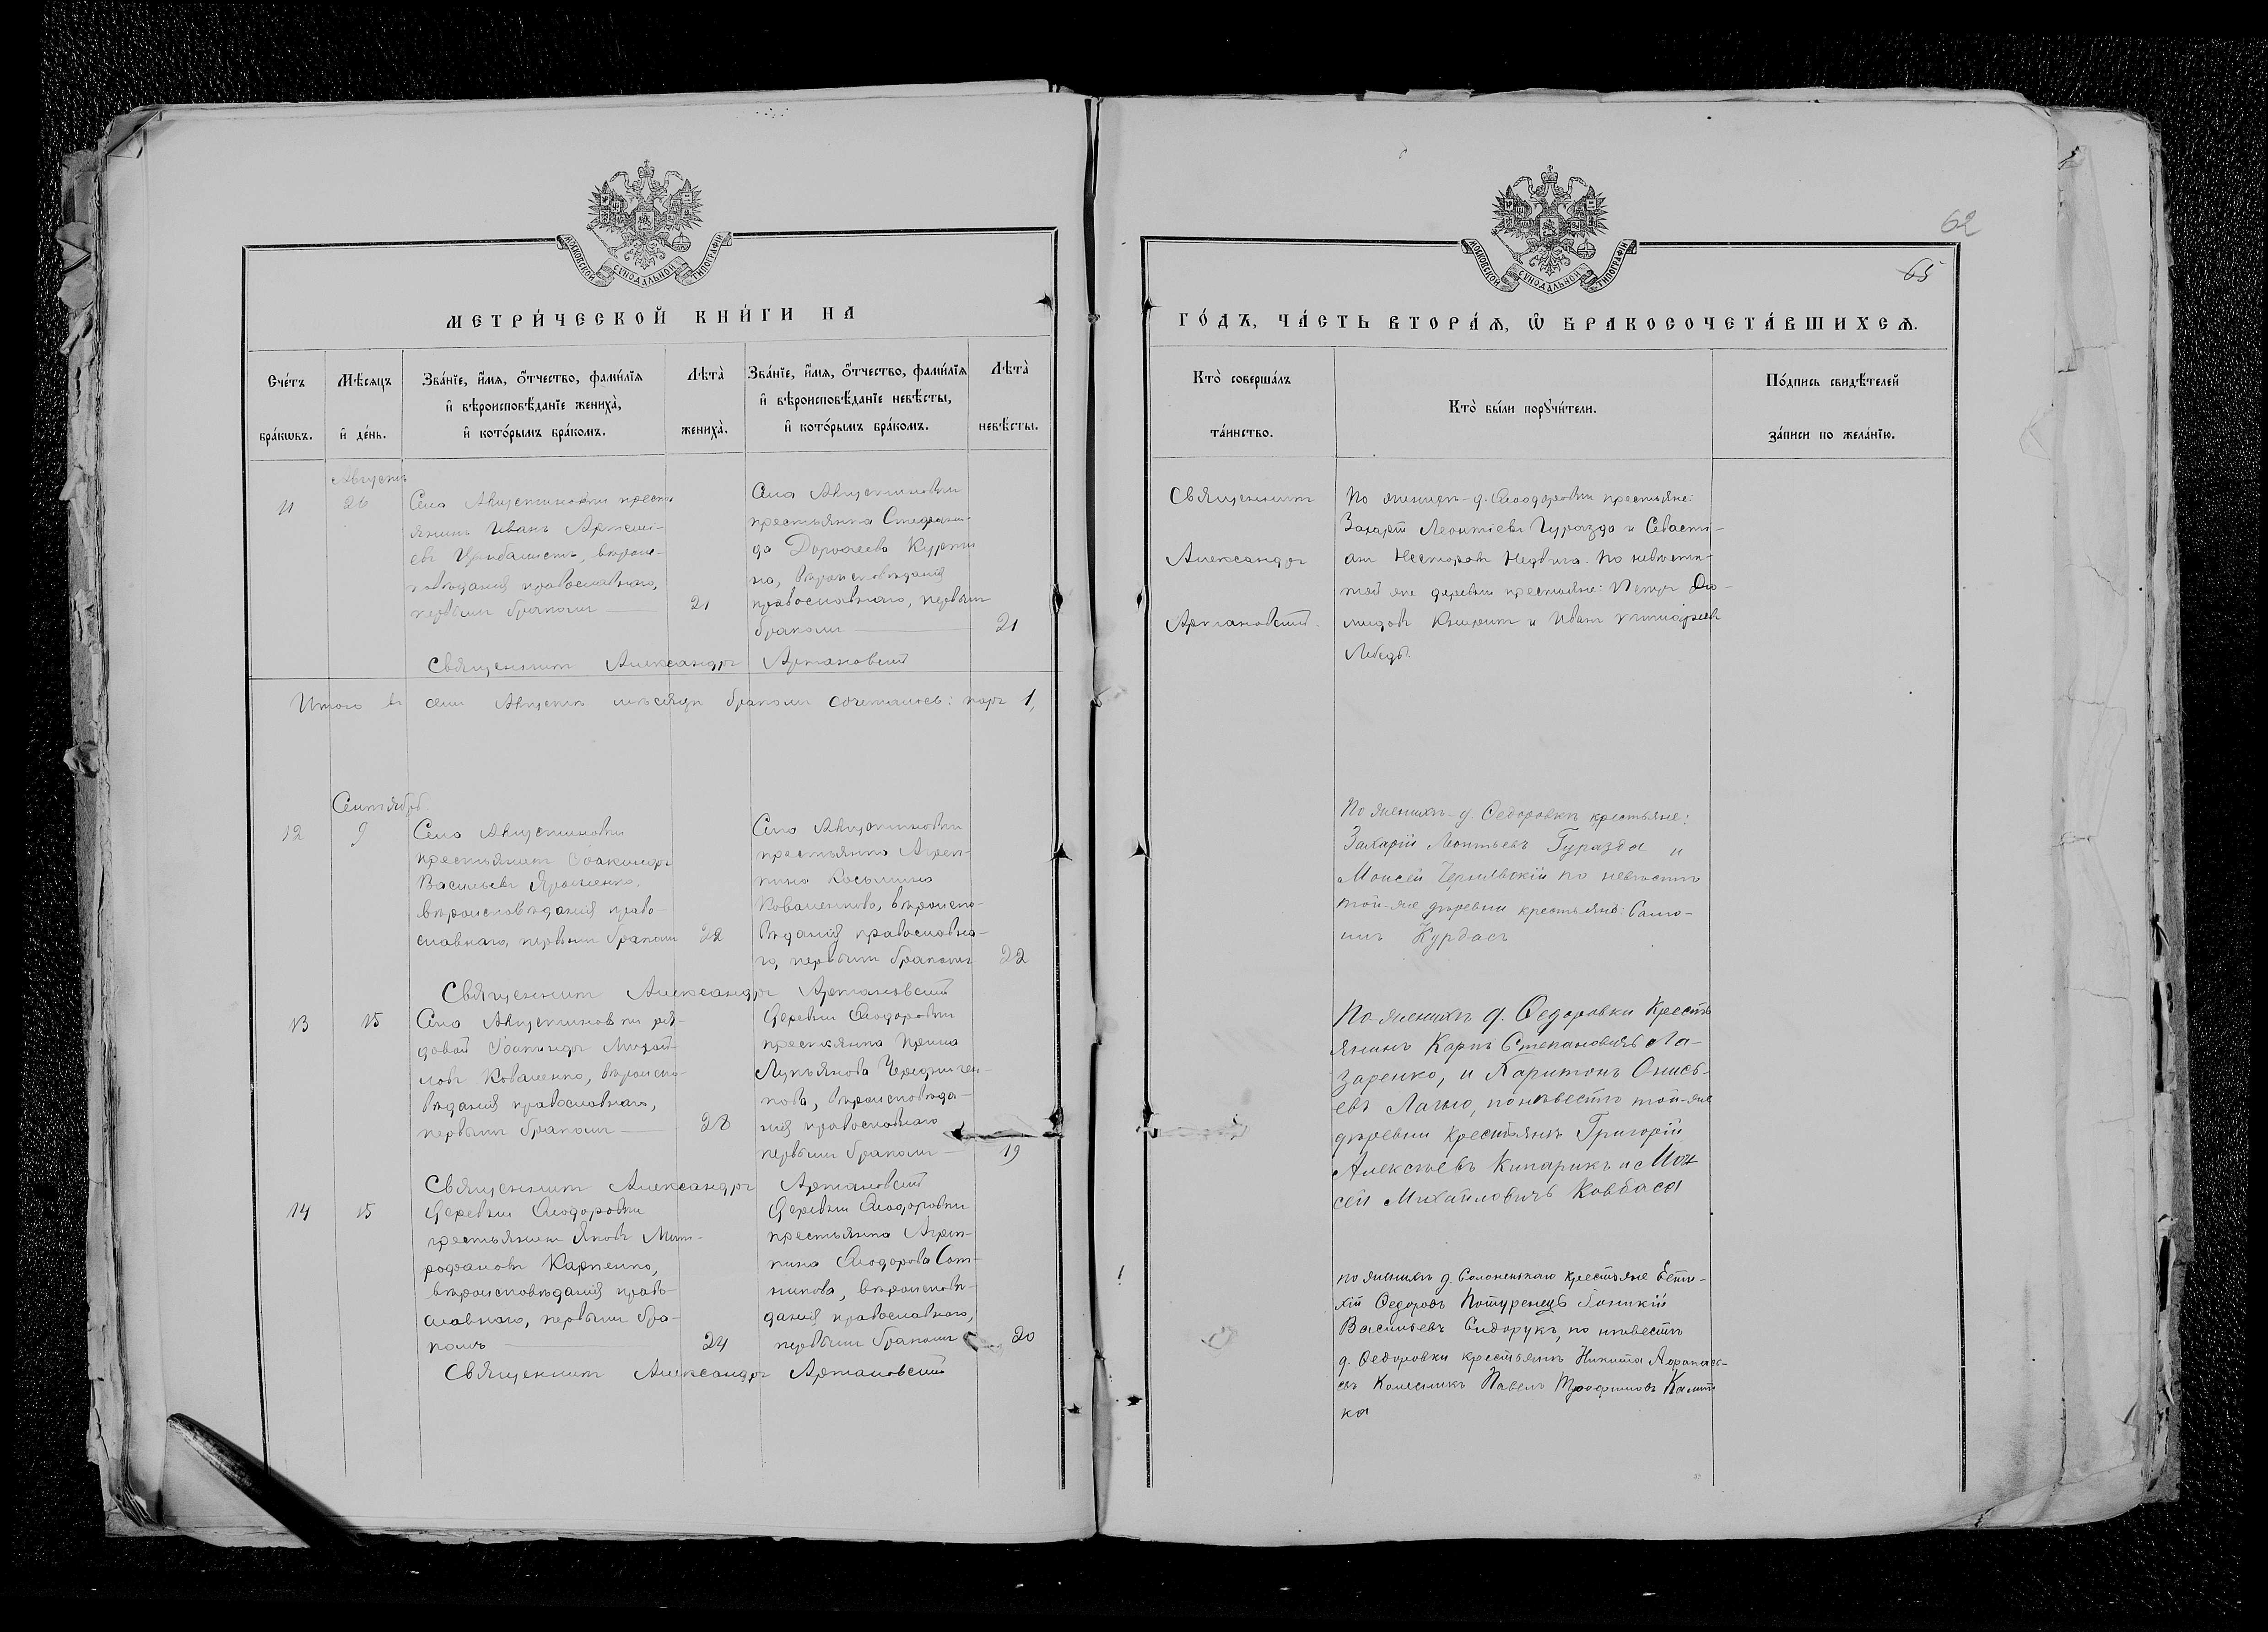 МОСКОВСКОЙ СУНОДАЛЬНОЙ ТИПОГРАФІИ
МЕТРИ́ЧЕСКОЙ КНИ́ГИ НА
Сче́тъ бра́кѡвъ.
Мѣ́сяцъ и҆ де́нь.
Зва́нїе, и҆́мя, о҆́тчество, фами́лїя
и҆ вѣроисповѣ́данїе жениха̀,
и҆ кото́рымъ бра́комъ.
Лѣта̀ жениха̀.
Зва́нїе, и҆́мя, о҆́тчество, фами́лїя
и҆ вѣроисповѣ́данїе невѣ́сты,
и҆ кото́рымъ бра́комъ.
Лѣта̀ невѣ́сты.
Августъ
11
26
Села Августиновки кресть
янинъ Иванъ Артемі-
евъ вѣроис-
повѣданія православнаго,
первымъ бракомъ
21
Села Августиновки
крестьянка Стефани-
да
на, вѣроисповѣданія
православнаго, первымъ
бракомъ
21
Священникъ Александръ Артановскій
Итого въ семъ Августѣ мѣсяцѣ бракомъ сочеталось: паръ 1,
Сентябрь.
12
9
Села Августиновки
крестьянинъ
Васильевъ Ярошенко,
вѣроисповѣданія право-
славнаго, первымъ бракомъ
22
Села Августиновки
крестьянка Агреп-
пина Косьмина
Коваленкова, вѣроиспо-
вѣданія православна-
го, первымъ бракомъ
22
Священникъ Александръ Артановскій
13
15
Села Августиновки ря-
довой Михай-
ловъ Коваленко, вѣроиспо-
вѣданія православнаго,
первымъ бракомъ
28
Деревни Ѳеодоровки
крестьянка Ирина
Лукьянова Чередничен-
кова, вѣроисповѣда-
нія православнаго
первымъ бракомъ
19
Священникъ Александръ Артановскій
14
15
Деревни Ѳеодоровки
крестьянинъ Яковъ Мит-
рофановъ Карпенко,
вѣроисповѣданія право-
славнаго, первымъ бра-
комъ
24
Деревни Ѳеодоровки
крестьянка Агреп-
пина Ѳеодорова Сот-
никова, вѣроисповѣ-
данія православнаго,
первымъ бракомъ
20
Священникъ Александръ Артановскій
62
65
МОСКОВСКОЙ СУНОДАЛЬНОЙ ТИПОГРАФІИ
ГО́ДЪ, ЧА́СТЬ ВТОРА́Ѧ, Ѡ҆ БРАКОСОЧЕТА́ВШИХСѦ.
Кто̀ соверша́лъ
та́инство.
Кто̀ бы́ли порꙋчи́тели.
По́дпись свидѣ́телей
за́писи по жела́нїю.
Священникъ
Александръ
Артановскій.
По женихѣ - д. Ѳеодоровки крестьяне:
Захарій Леонтіевъ Гуразда и Севасті-
анъ Несторовъ По невѣстѣ -
той же деревни крестьяне: Петръ Діо-
мидовъ и Иванъ
Лебедь.
По женихѣ - д. Ѳедоровки крестьяне:
Захарій Леонтьевъ Гуразда и
Моисей Чернявскій по невѣстѣ
той-же деревни крестьяне: Само-
илъ Курдасъ
По женихѣ д. Ѳедоровки Кресть
янинъ Карпъ Степановичъ Ла-
заренко, и Харитонъ Онись-
евъ по невѣстѣ той-же
деревни крестьянъ Григорій
Алексѣевъ Кипарикъ и Мои
сей Михайловичъ Ковбаса
!
по женихѣ д. Солоненькаго крестьяне Евти-
хій Ѳедоровъ Потуренецъ
Васильевъ Сидорукъ, по невѣстѣ
д. Ѳедоровки крестьянъ Никита Афанась-
евъ Колесникъ Павелъ Трофимовъ Калит
ка